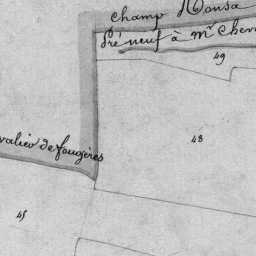 champ
Pré neuf à Mr Chev
49
48
valier de fougères
45